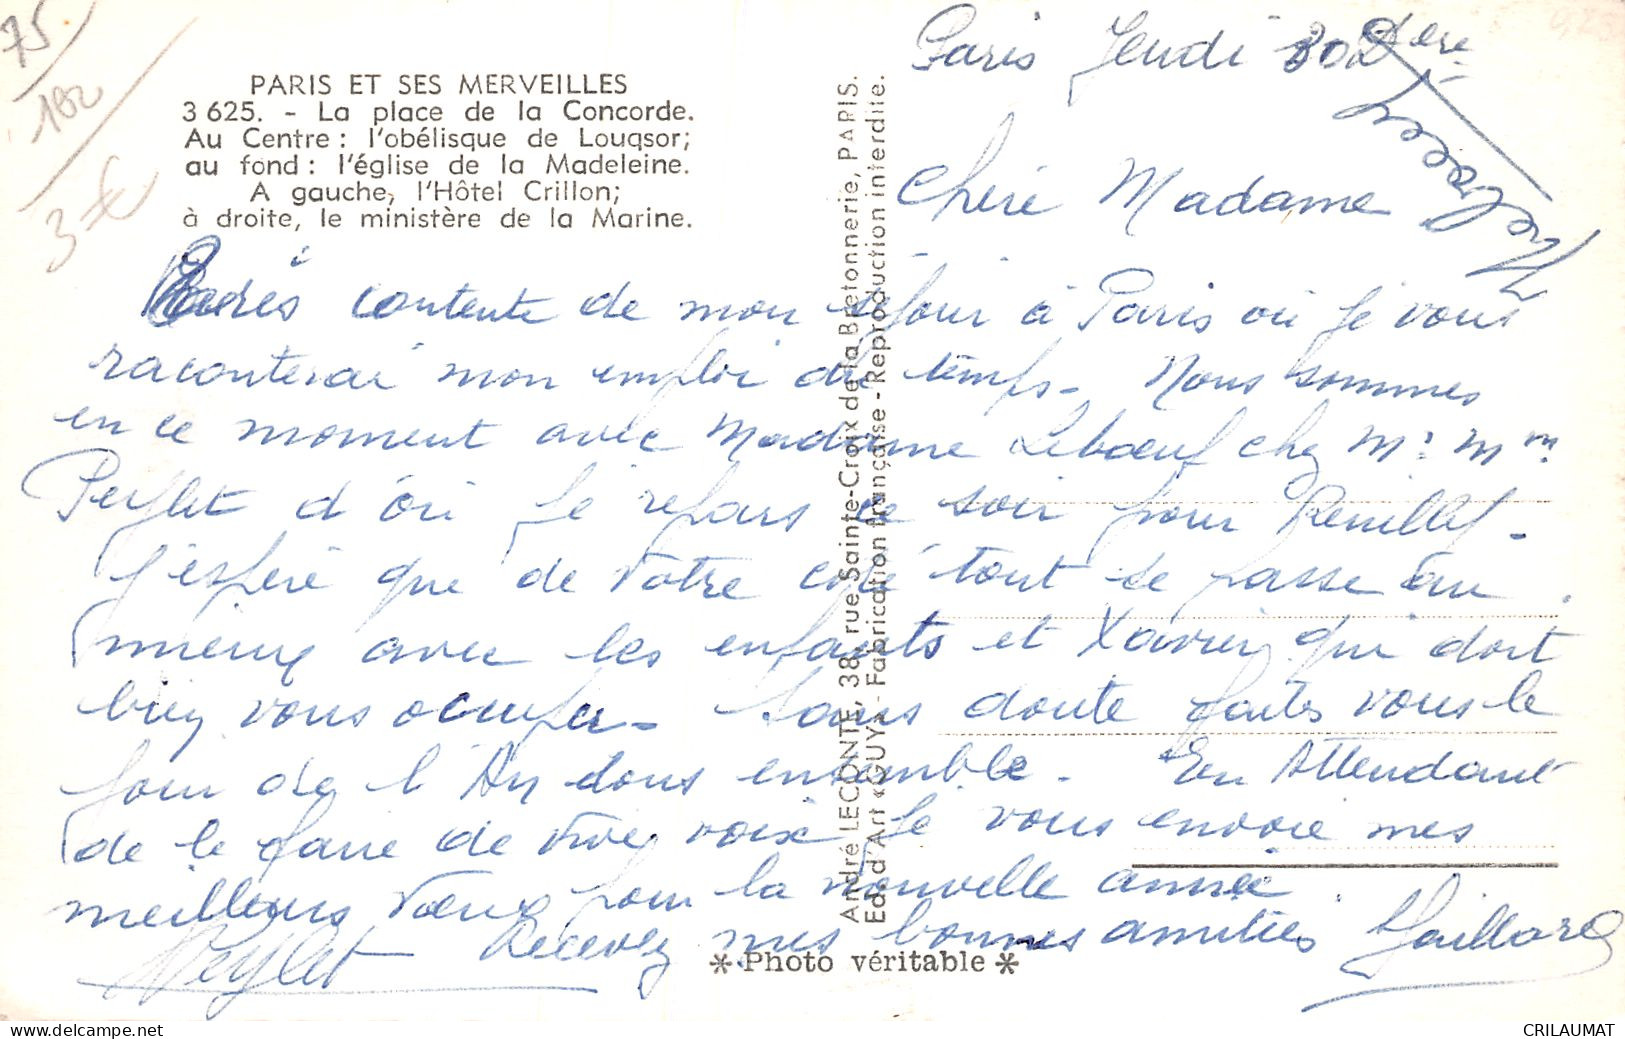 75
102
3 €
PARIS ET SES MERVEILLES
3 625. - La place de la Concorde.
Au Centre : l'obélisque de Louqsor;
au fond : l'église de la Madeleine.
A gauche, l'Hôtel Crillon;
à droite, le ministère de la Marine.
André LECONTE, 38, rue Sainte-Croix de la Bretonnerie, PARIS.
Ed. d'Art «GUY» - Fabrication française - Reproduction interdite.
Paris Jeudi 30 Dere
Chère Madame
contente de mon séjour à Paris où je vous
raconterai mon emploi du temps - Nous sommes
en ce moment avec Madame Leboeuf chez Mr Mm
d'où je repars ce soir pour Renillet -
J'espère que de votre côté tout se passe au
mieux avec les enfants et Xavier qui doit
bien vous occuper - Sans doute faites vous le
jour de l'An dans ensemble - En Attendant
de le faire de vive voix je vous envoie mes
meilleurs voeux pour la nouvelle année.
Recevez mes bonnes amitiés Gaillard
* Photo véritable *
CRILAUMAT